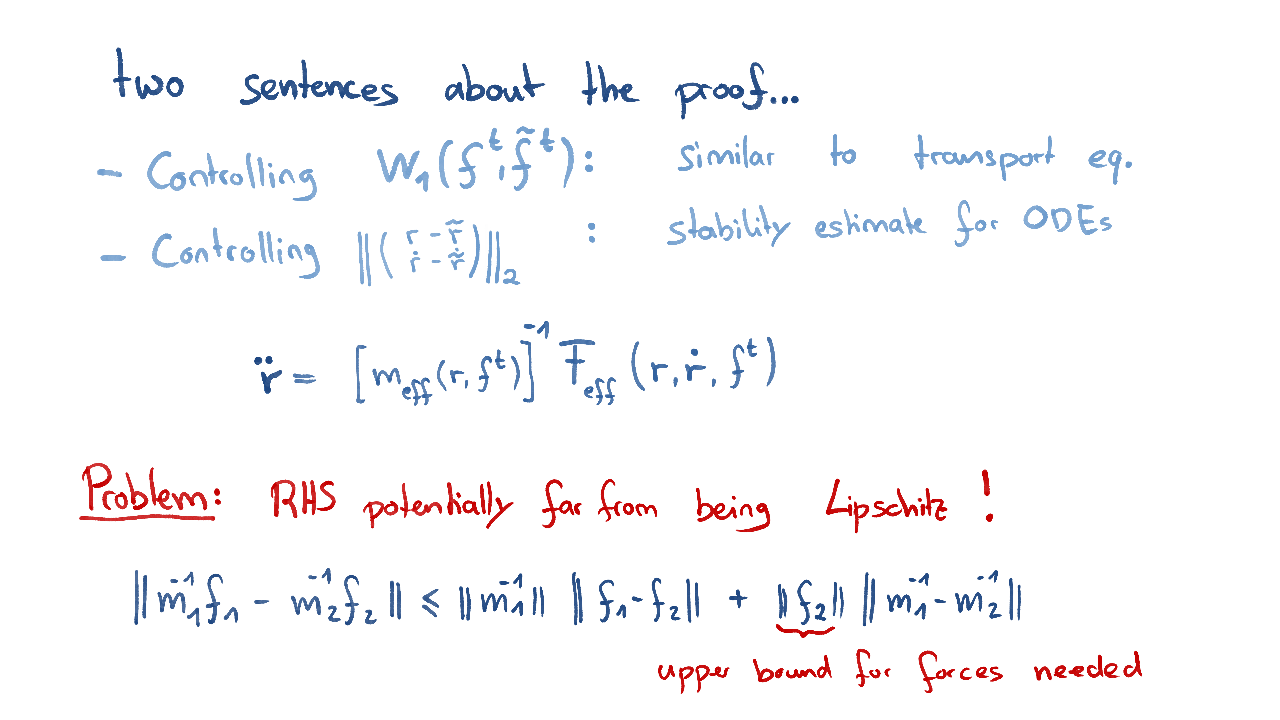 two sentences about the proof...
- Controlling W₁(fᵗ, f̃ᵗ): similar to transport eq.
- Controlling ‖(r - r̃ / ṙ - ṙ̃)‖₂ : stability estimate for ODEs
r̈ = [m_eff(r, fᵗ)]⁻¹ F_eff (r, ṙ, fᵗ)
Problem: RHS potentially far from being Lipschitz!
‖m₁⁻¹f₁ - m₂⁻¹f₂‖ ≤ ‖m₁⁻¹‖ ‖f₁-f₂‖ + ‖f₂‖ ‖m₁⁻¹-m₂⁻¹‖
upper bound for forces needed